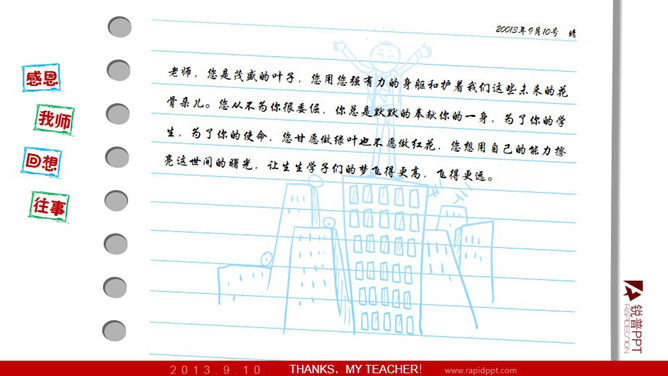 20013年9月10号 晴
感恩
我师
回想
往事
老师，您是茂盛的叶子，您用您强有力的身躯和护着我们这些未来的花
骨朵儿。您从不为你很委屈，你总是默默的奉献你的一身，为了你的学
生，为了你的使命，您甘愿做绿叶也不愿做红花，您想用自己的能力擦
亮这世间的曙光，让生生学子们的梦飞得更高，飞得更远。
锐普PPT
RAPIDESIGN
2013.9.10
THANKS，MY TEACHER！
www.rapidppt.com